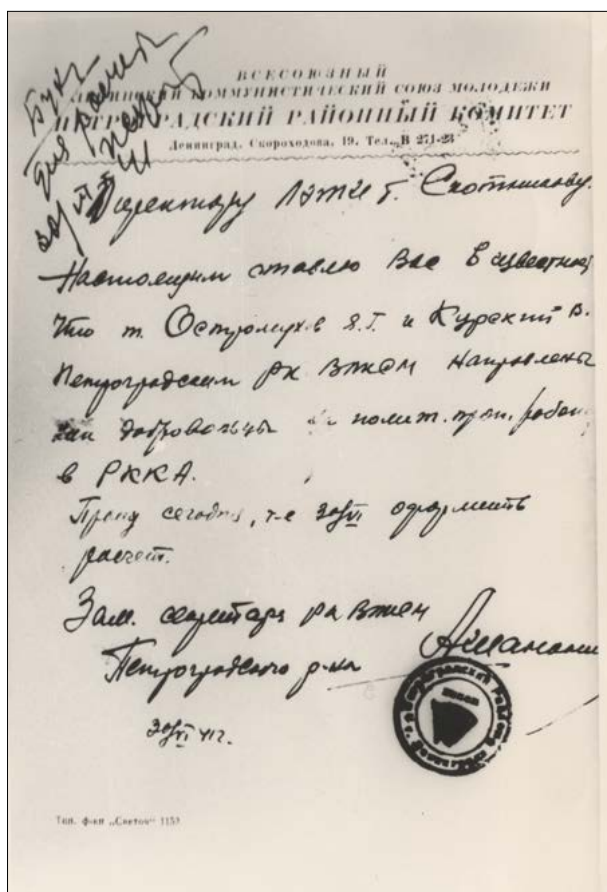 ВСЕСОЮЗНЫЙ
ЛЕНИНСКИЙ КОММУНИСТИЧЕСКИЙ СОЮЗ МОЛОДЕЖИ
ПЕТРОГРАДСКИЙ РАЙОННЫЙ КОМИТЕТ
Ленинград, Скороходова, 19. Тел. В 271-23
Директору ЛЭТИ т. Скотникову.
Настоящим ставлю Вас в известность
что т. Остроумов Я.Г. и Курский В.
Петроградским РК ВЛКСМ направлены
как добровольцы на полит. проп. работу
в РККА.
Прошу сегодня, т-е 30/VI оформить
расчет.
Зам. секретарь рк ВЛКСМ
Петроградского р-на
30/VI 41г.
Тип. ф-ки „Светоч“ 1152